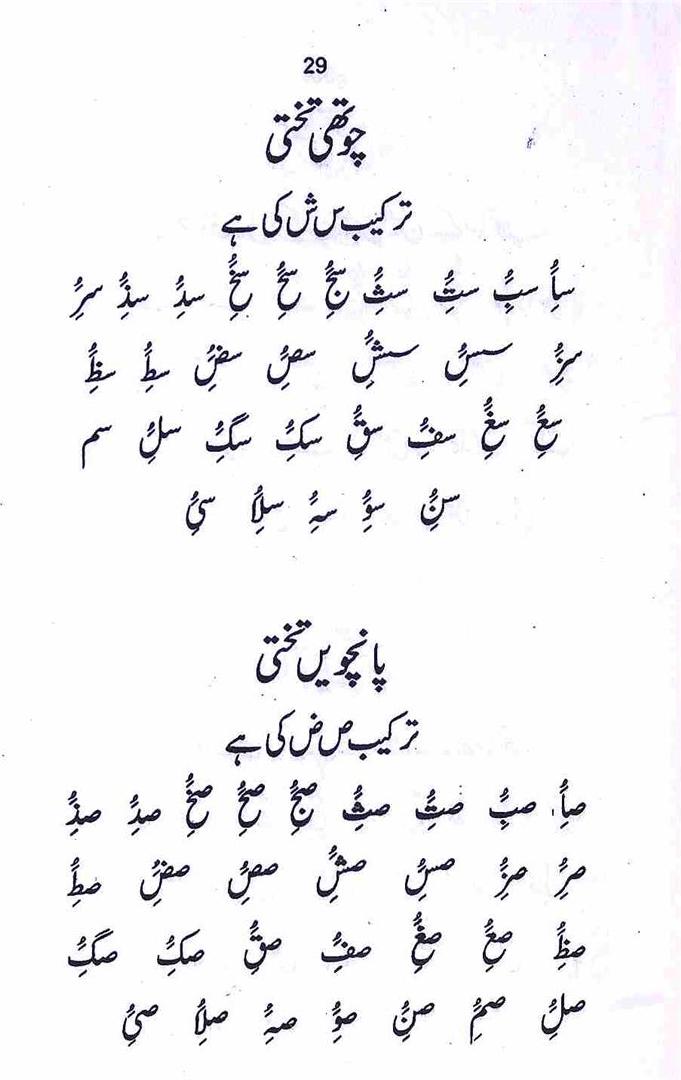 29
چوتھی تختی
ترکیب س ش کی ہے
سا سب ست سث سج سح سخ سد سذ سر
سز سس سش سص سض سط سظ
سع سغ سف سق سک سگ سل سم
سن سو سہ سلا سی
پانچویں تختی
ترکیب ص ض کی ہے
صا صب صت صث صج صح صخ صد صذ
صر صز صس صش صص صض صط
صظ صع صغ صف صق صک صگ
صل صم صن صو صہ صلا صی